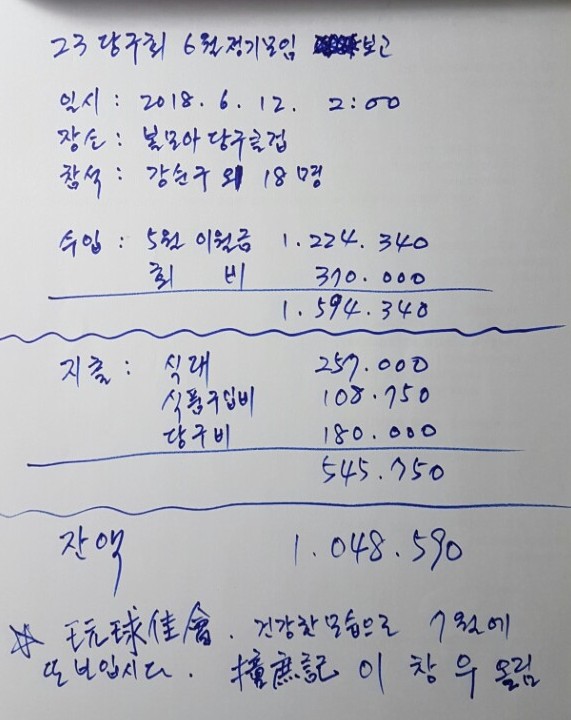 23 당구회 6월 정기모임 보고
일시 : 2018. 6. 12. 2:00
장소 : 볼모아 당구클럽
참석 : 강순구 외 18명
수입 : 5월 이월금 1.224.340
회 비 370.000
1.594.340
지출 : 식대 257.000
식품구입비 108.750
당구비 180.000
545.750
잔액 1.048.590
☆ 琉球佳會. 건강한 모습으로 7월에
또 보입시다. 이 창 우 올림